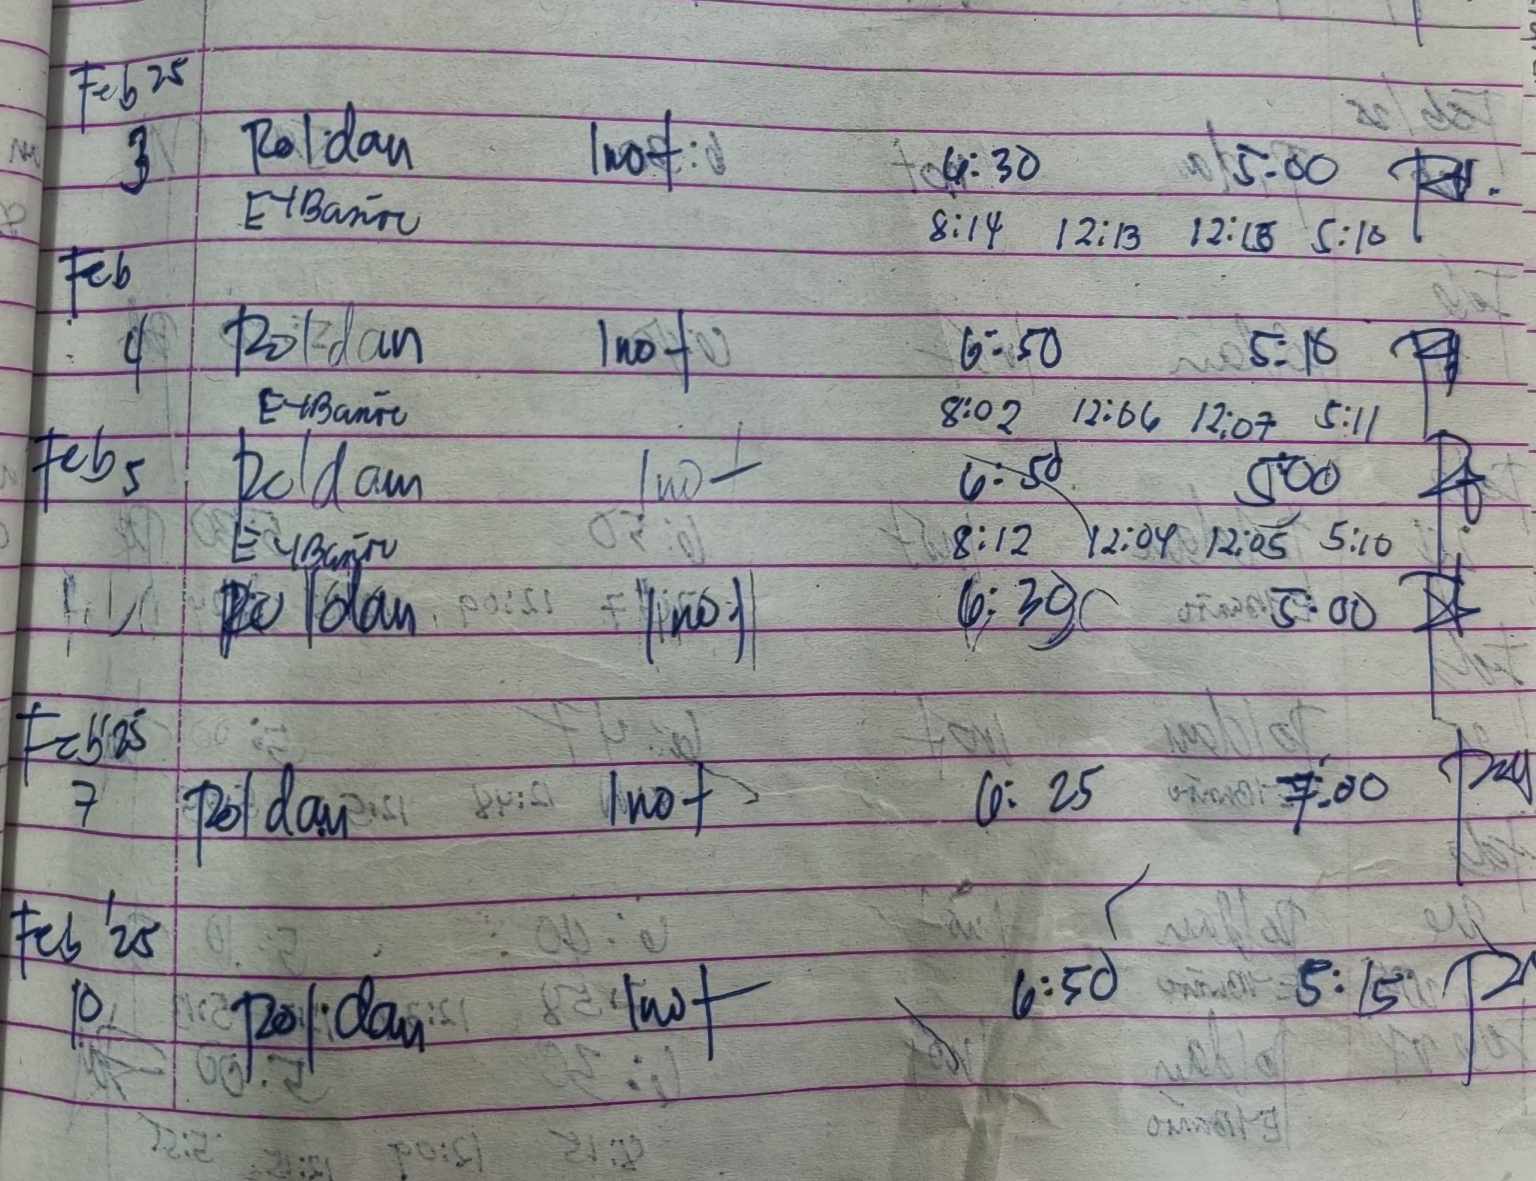 Feb 25
3 Roldan Inot 6:30 5:00
E-Bañre 8:14 12:13 12:13 5:10
Feb
4 Roldan Inot 6:50 5:10
E-Bañre 8:02 12:06 12:07 5:11
Feb 5 Roldan Inot 6:50 5:00
E-Bañre 8:12 12:04 12:05 5:10
Roldan Inot 6:30 5:00
Feb '25
7 Roldan Inot 6:25 7:00
Feb '25
10 Roldan Inot 6:50 5:15